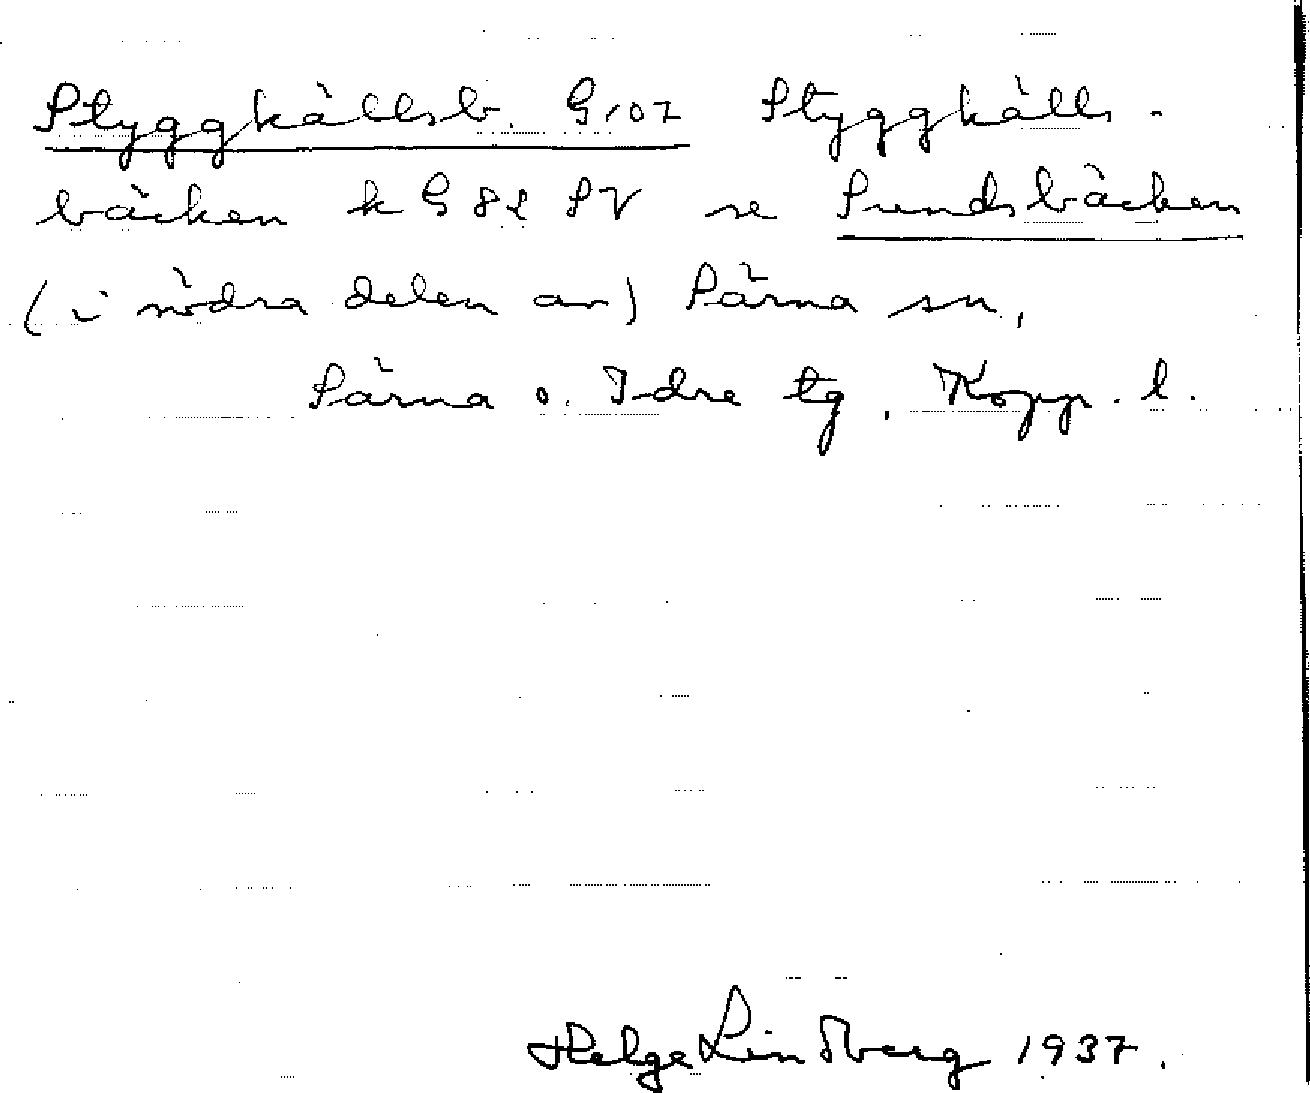 Styggkällsb. G 107 Styggkälls-
bäcken k G 82 SV se Sundsbäcken
(i södra delen av) Särna sn,
Särna o. Idre tg. Kopp. l.
Helge Lindberg 1937.